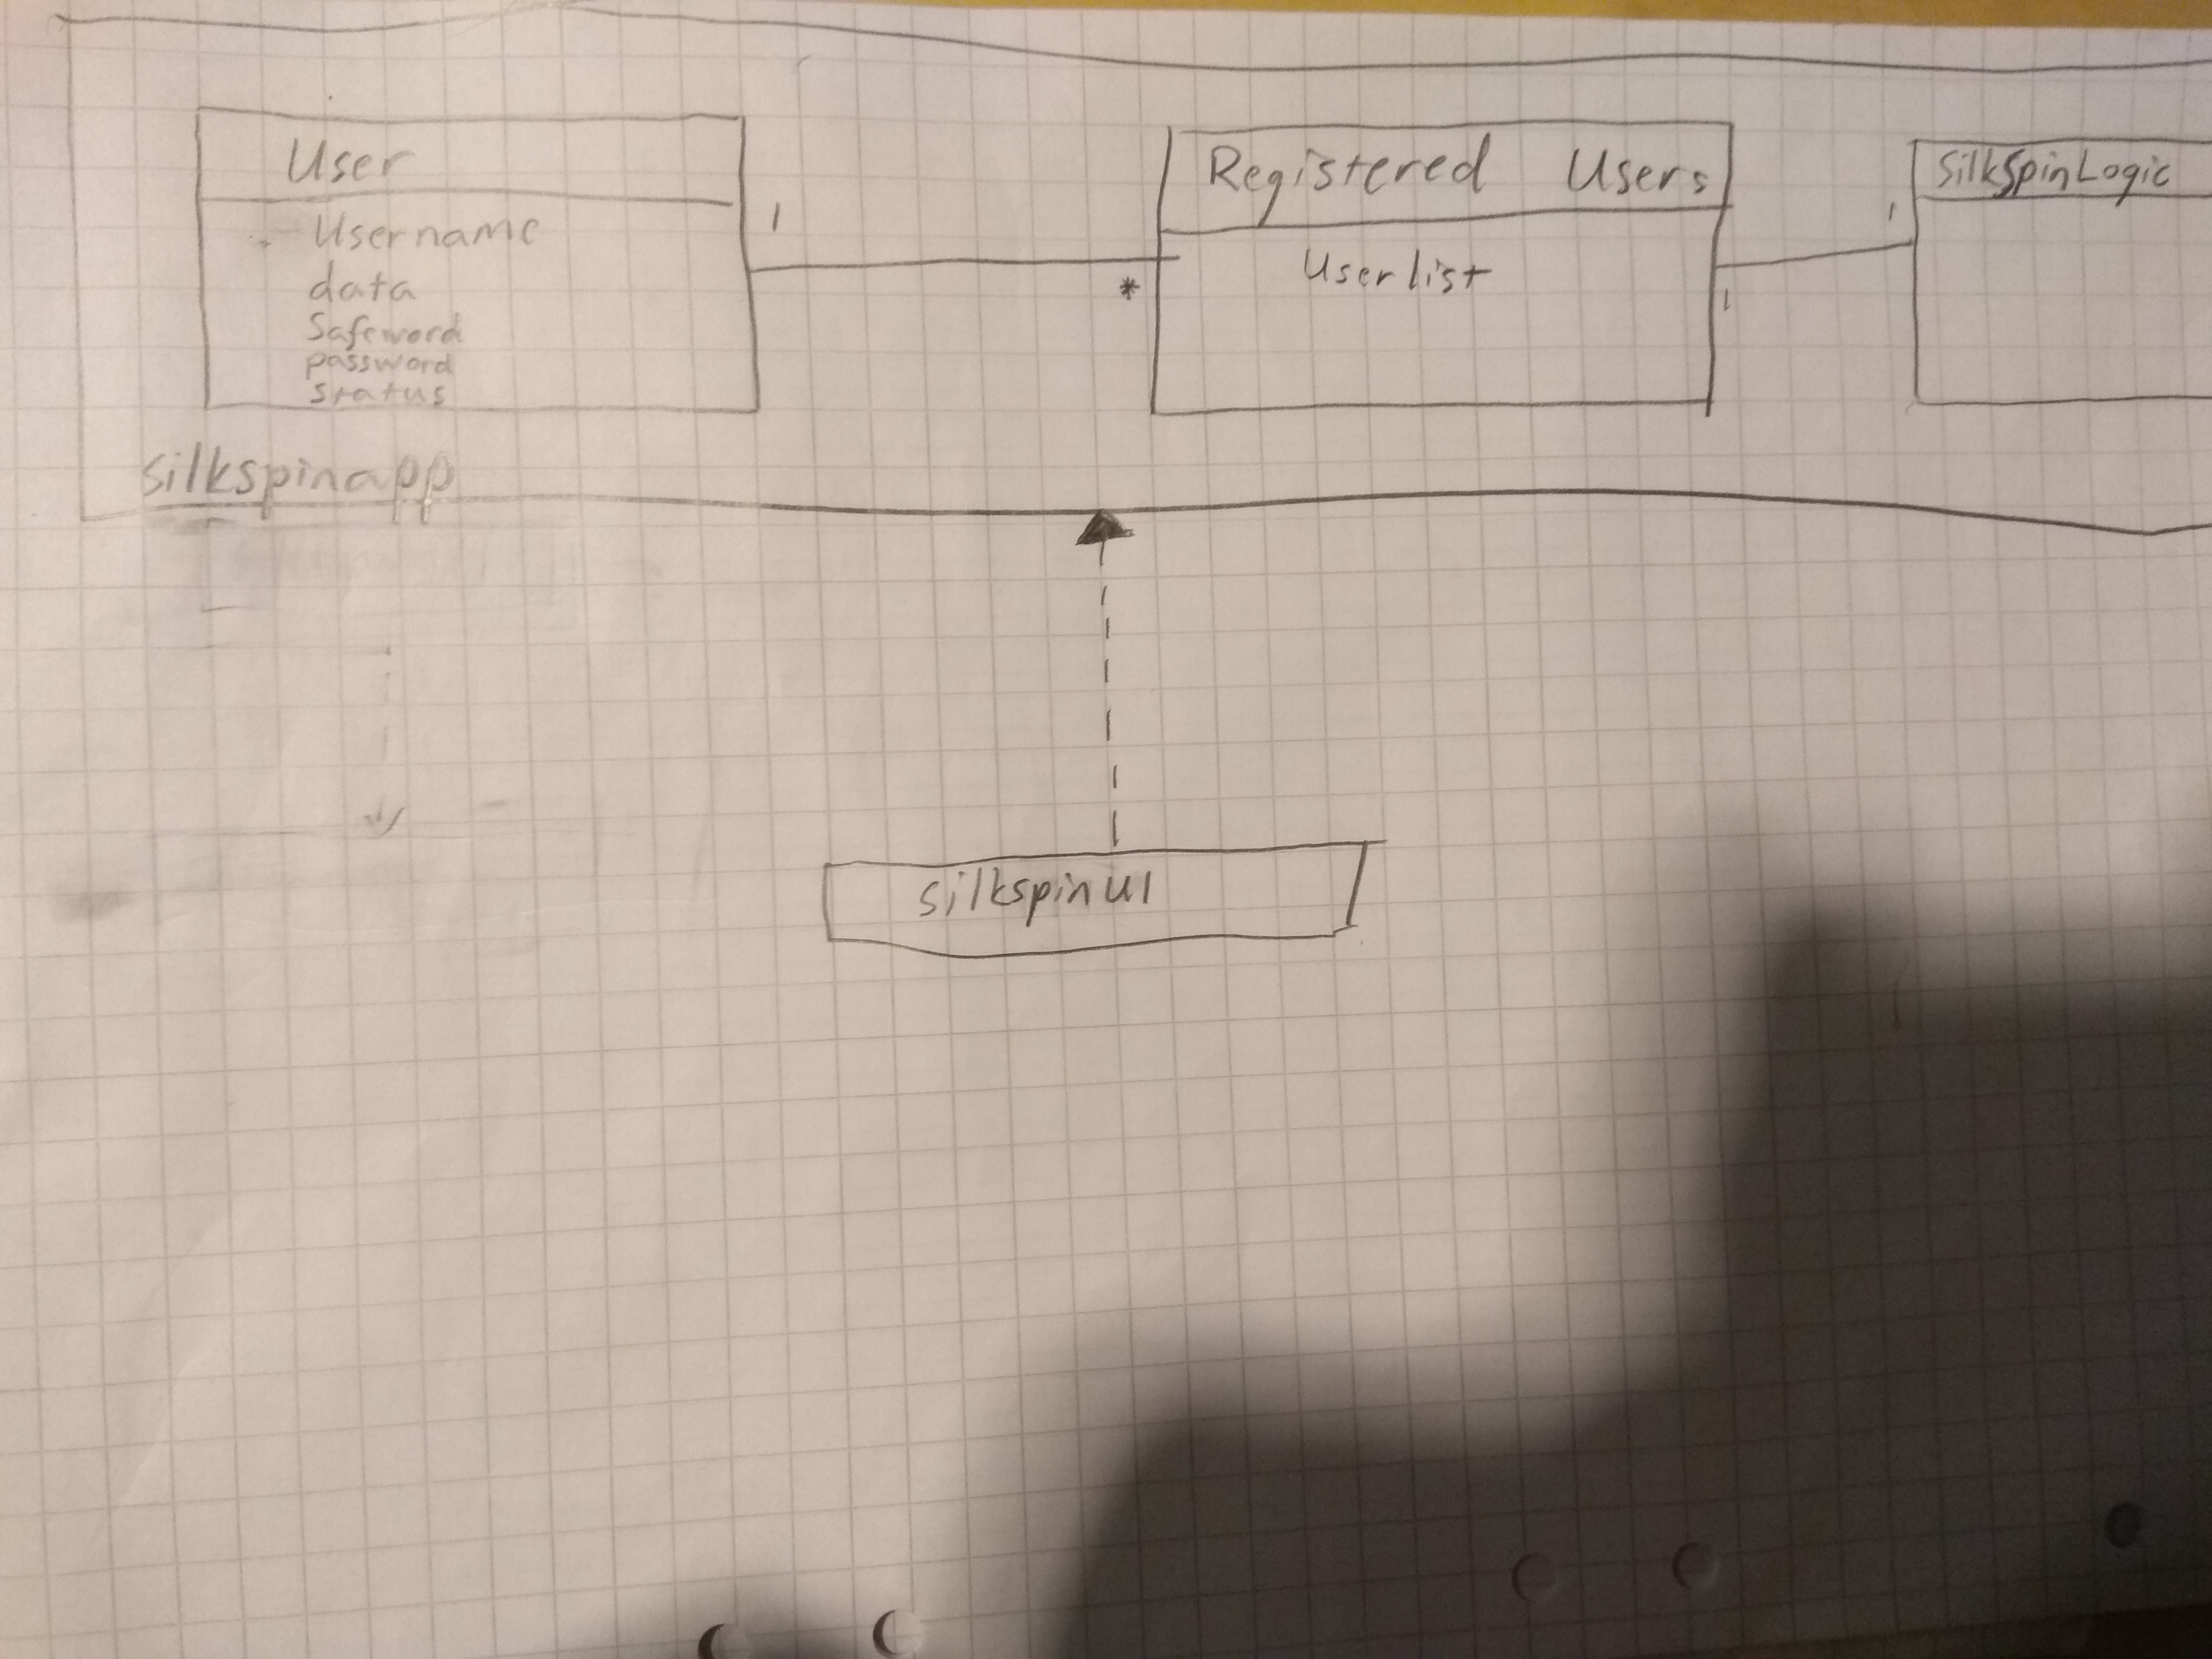 User
Username
data
Safeword
password
status
1
*
Registered Users
Userlist
1
1
SilkSpinLogic
silkspinapp
silkspinUI